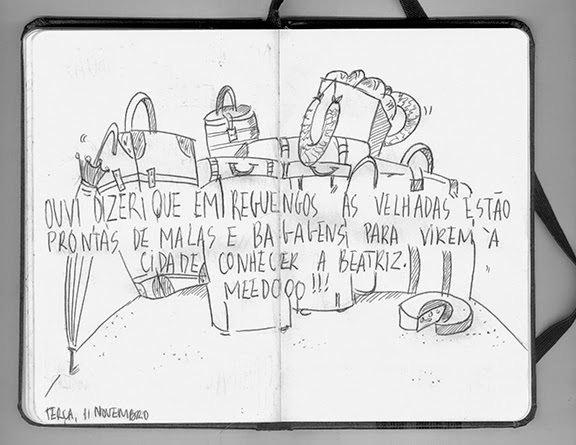 OUVI DIZER QUE EM REGUENGOS AS VELHADAS ESTÃO
PRONTAS DE MALAS E BAGAGENS PARA VIREM À
CIDADE CONHECER A BEATRIZ.
MEEDOOO!!!
TERÇA, 11 NOVEMBRO